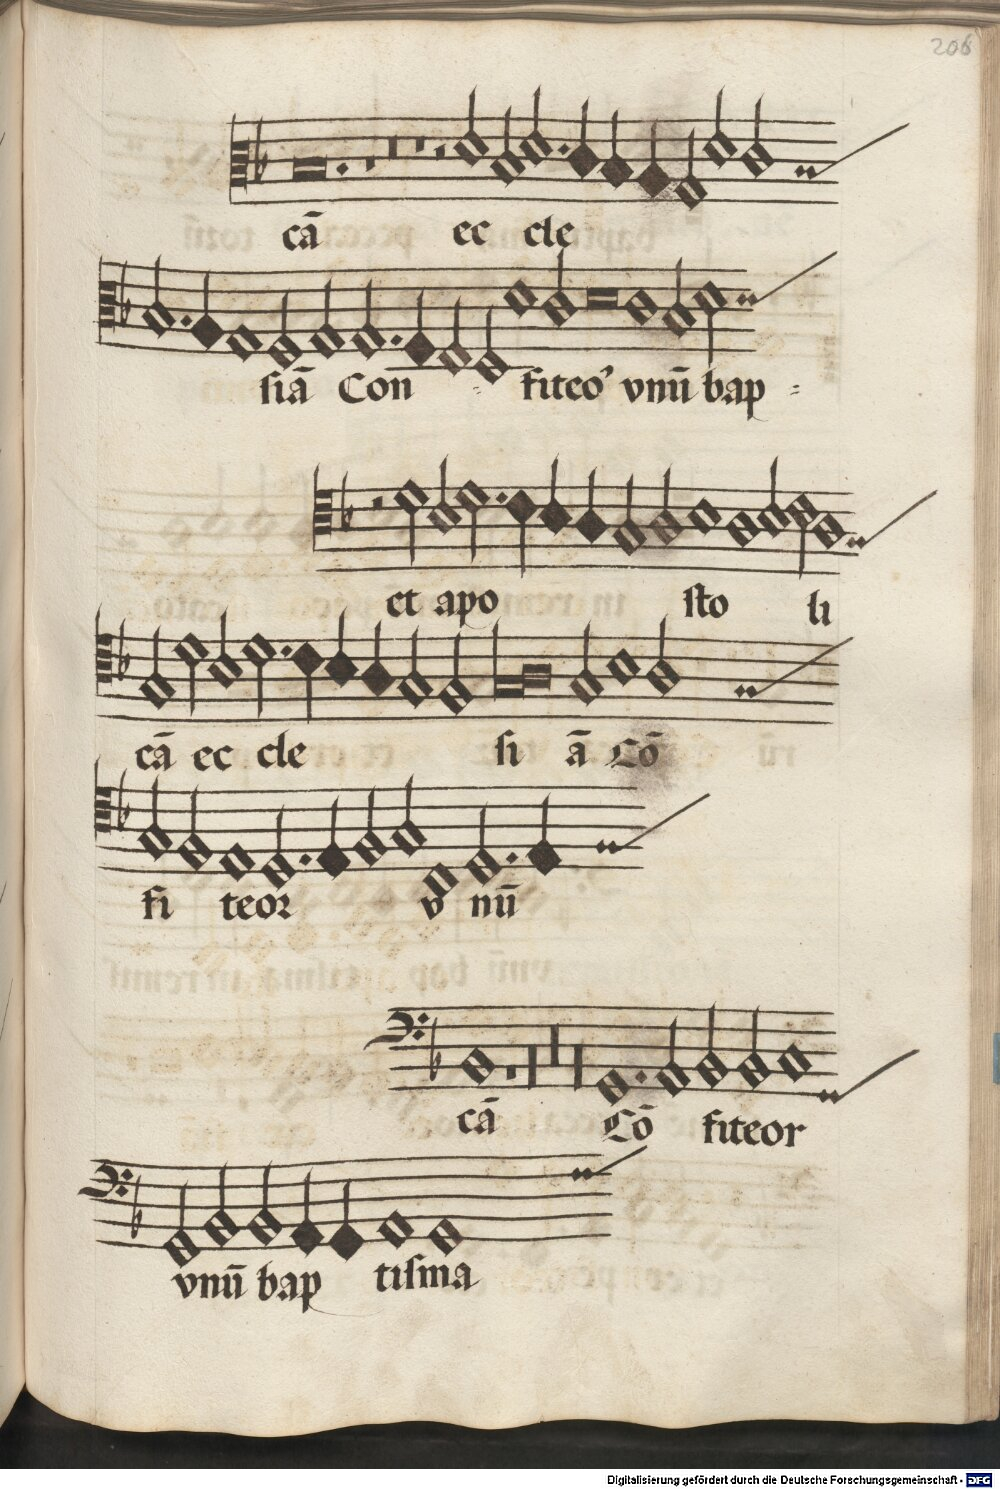 206
cā ec cle
siā Con - fiteo' vnū bap -
et apo sto li
cā ec cle si ā Cō
fi teor v nū
cā Cō fiteor
vnū bap tisma
Digitalisierung gefördert durch die Deutsche Forschungsgemeinschaft - DFG